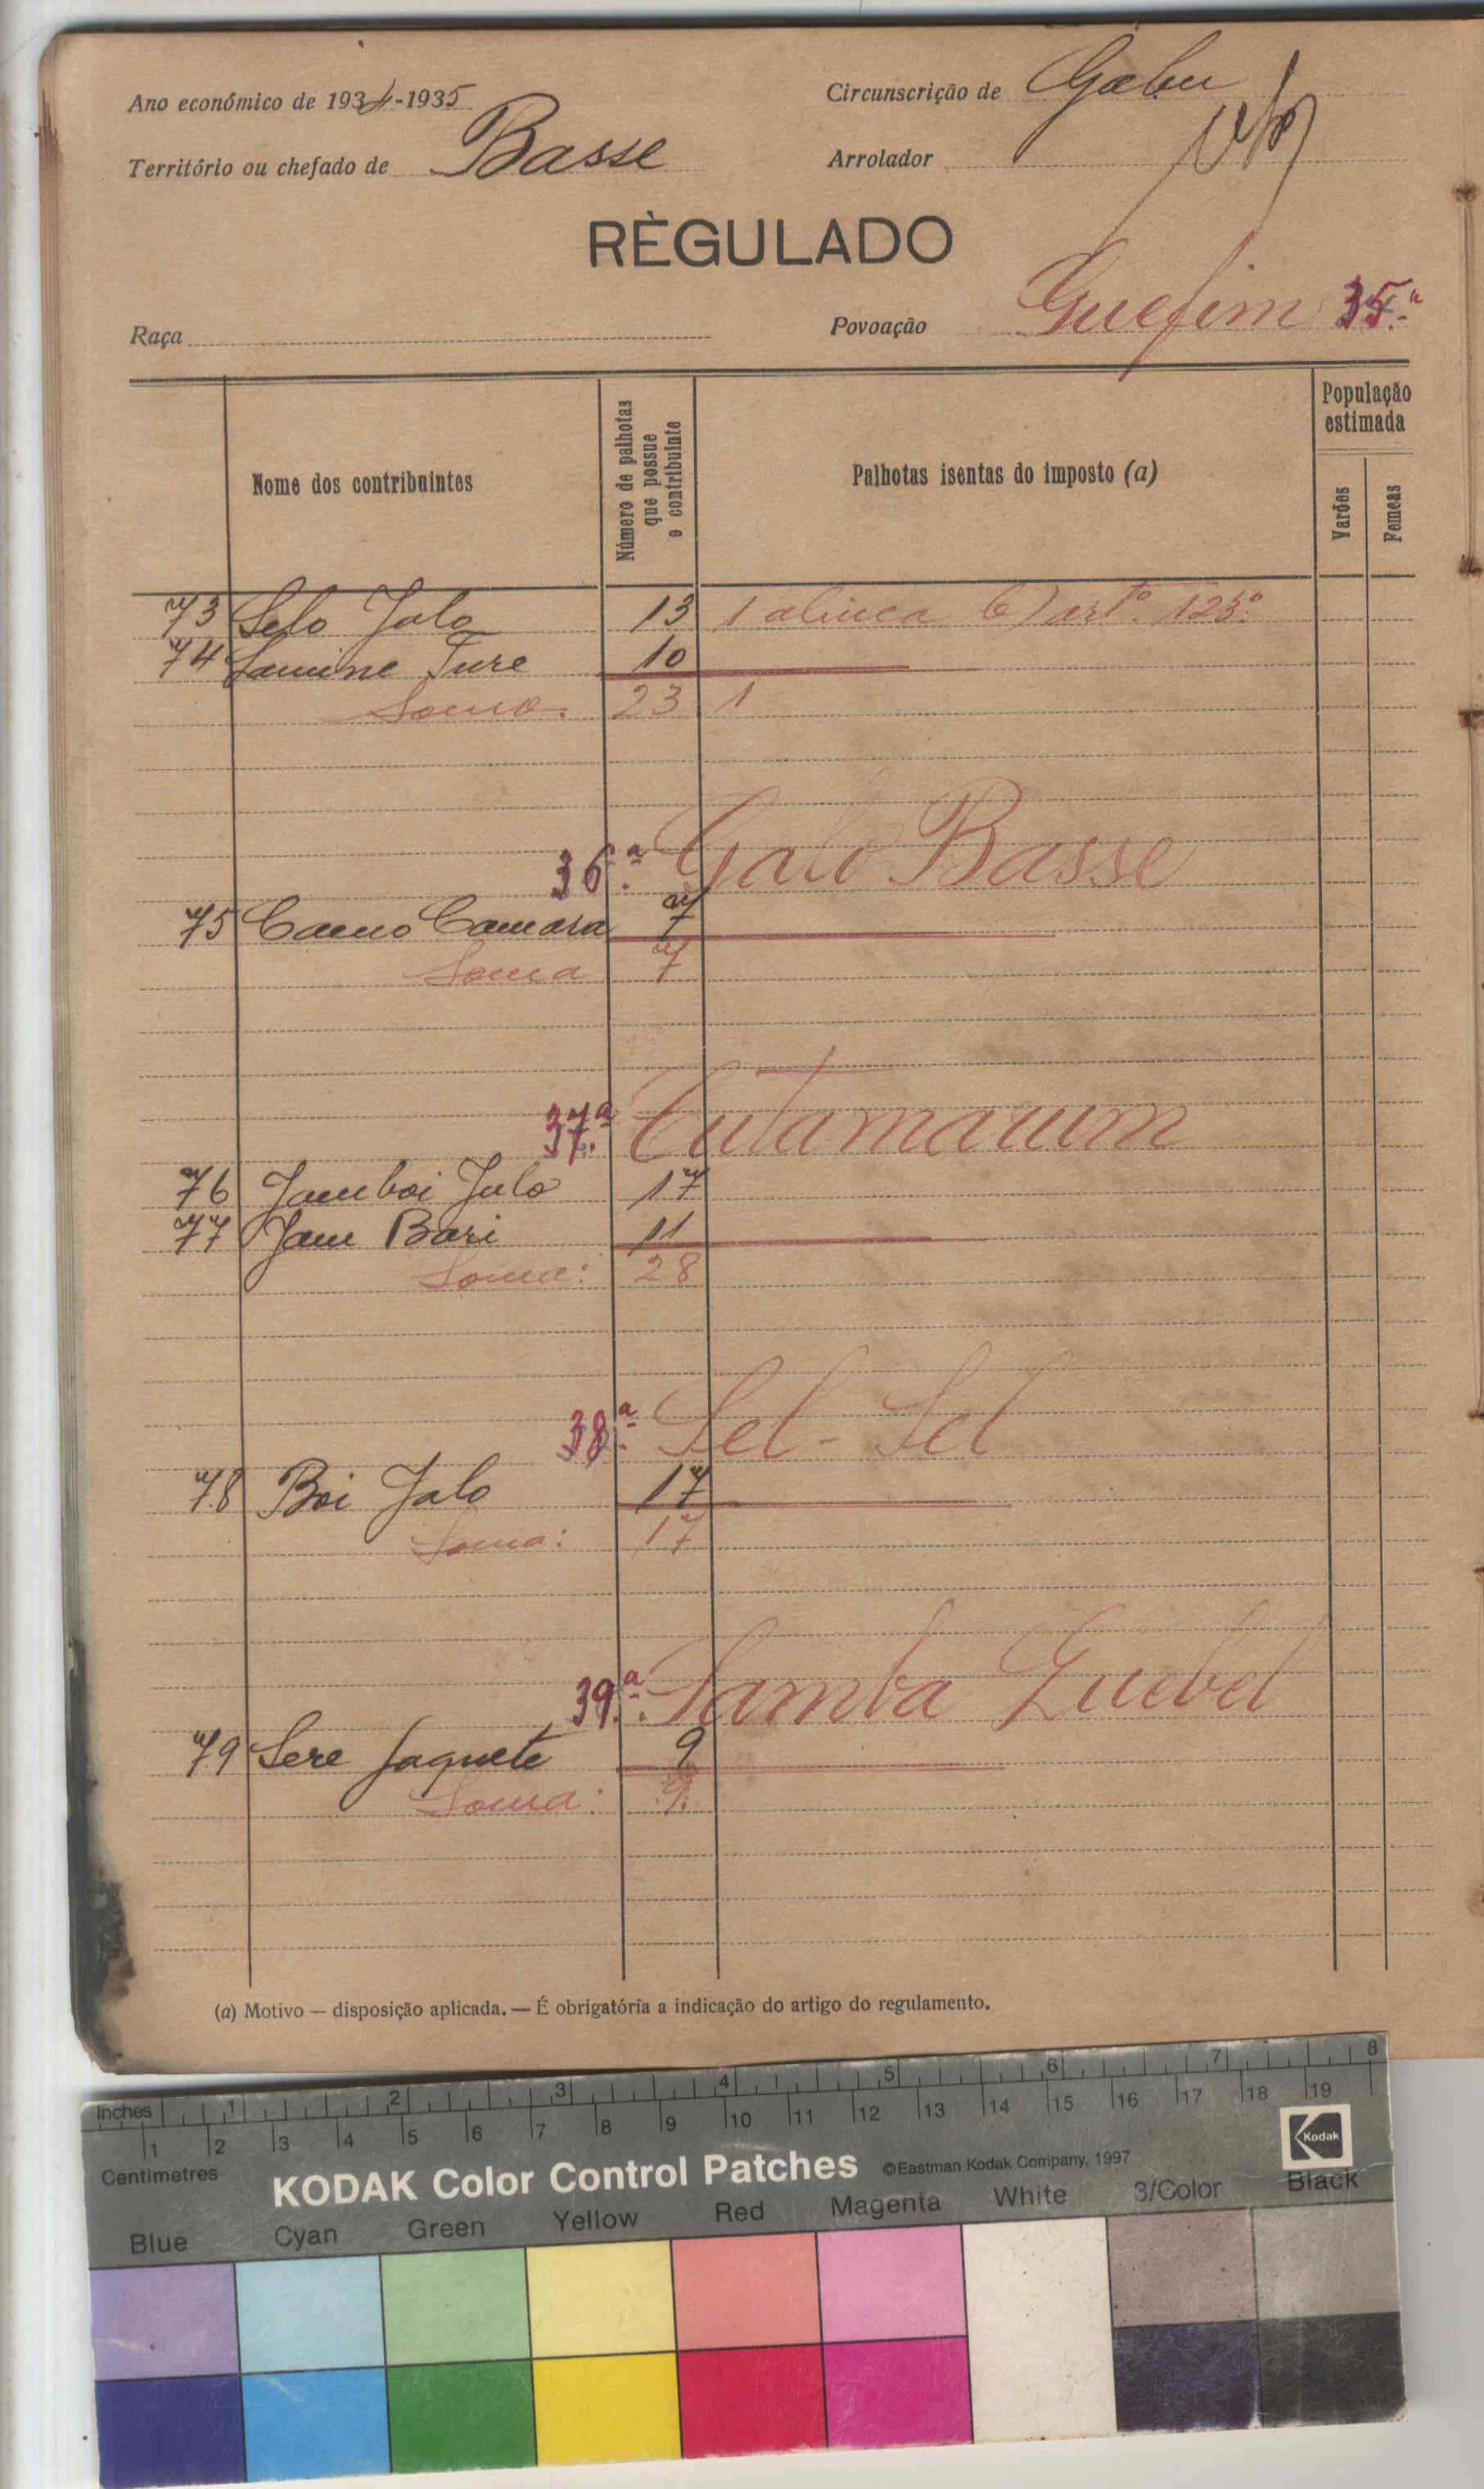 Ano económico de 1934-1935
Circunscrição de Gabu
Território ou chefado de Basse
Arrolador
RÈGULADO
Raça
Povoação Guefim 35.ª
Nome dos contribuintes
Número de palhotas que possue o contribuinte
Palhotas isentas do imposto (a)
População estimada
Varões
Femeas
73 Selo Jalo 13 1 alinea b) artº. 123º.
74 Lamine Ture 10
Soma. 23 1
36.ª Galo Basse
75 Camo Camara 7
Soma 7
37.ª
76 Jamboi Jalo 17
77 Jam Bari 11
Soma: 28
38.ª Sel-Sel
78 Boi Jalo 17
Soma: 17
39.ª Samba Guebel
79 Sere Jaquete 9
Soma: 9.
(a) Motivo — disposição aplicada. — É obrigatória a indicação do artigo do regulamento.
Inches 1 2 3 4 5 6 7 8
1 2 3 4 5 6 7 8 9 10 11 12 13 14 15 16 17 18 19
Centimetres
KODAK Color Control Patches ©Eastman Kodak Company, 1997
Kodak
Blue Cyan Green Yellow Red Magenta White 3/Color Black